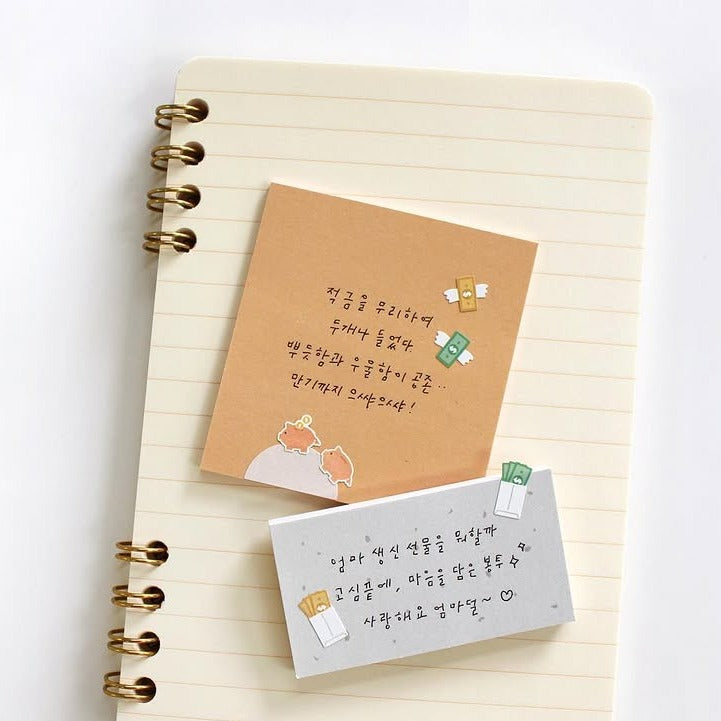 적금을 무리하여
두개나 들었다.
뿌듯함과 우울함이 공존..
만기까지 으쌰으쌰!
엄마 생신 선물을 뭐할까
고심끝에, 마음을 담은 봉투
사랑해요 엄마덜~♡